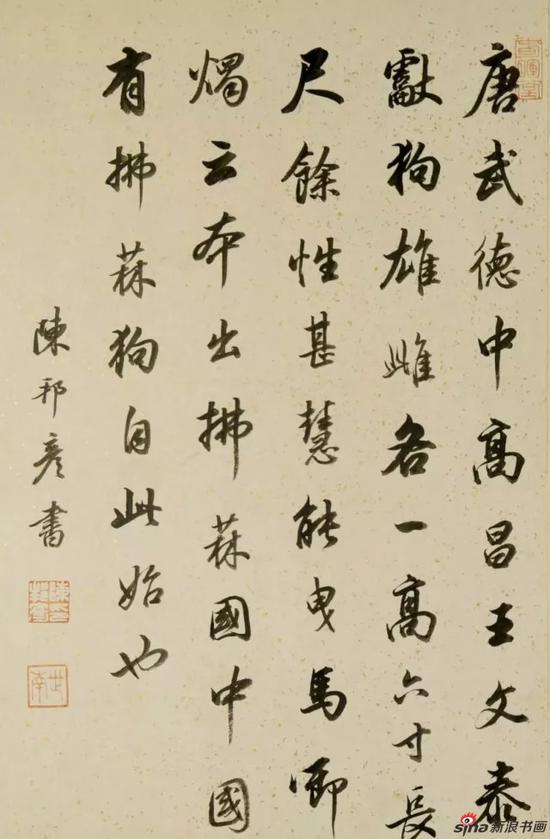 唐武德中高昌王文泰
獻狗雄雌各一高六寸長
尺餘性甚慧能曳馬啣
燭云本出拂菻國中國
有拂菻狗自此始也
陳邦彥書
sina新浪书画